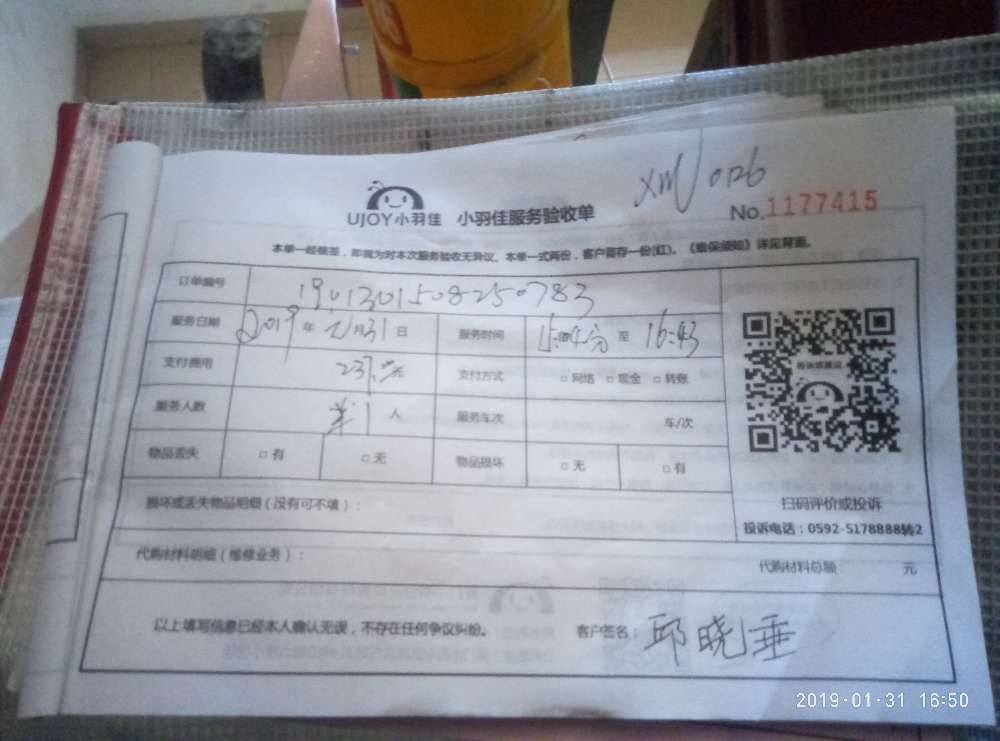 xm 0126
UJOY小羽佳 小羽佳服务验收单 No.1177415
本单一经填签，即视为对本次服务验收无异议。本单一式两份，客户留存一份(红)。《维保须知》详见背面。
订单编号 1901301508250783
服务日期 2019年元月31日 服务时间 至 16:43
支付费用 237.元 支付方式 □网络 □现金 □转账
服务人数 1人 服务车次 车/次
物品丢失 □有 □无 物品损坏 □无 □有
损坏或丢失物品明细（没有可不填）：
扫码评价或投诉
投诉电话：0592-5178888转2
代购材料明细（维修业务）： 代购材料总额： 元
以上填写信息已经本人确认无误，不存在任何争议纠纷。 客户签名：邱晓垂
2019-01-31 16:50